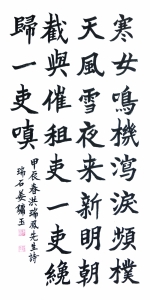 寒女鳴機瀉淚頻樸
天風雪夜来新明朝
截與催租吏一吏纔
歸一吏嗔
甲辰春洪瑞鳳先生詩
瑞石姜繡玉